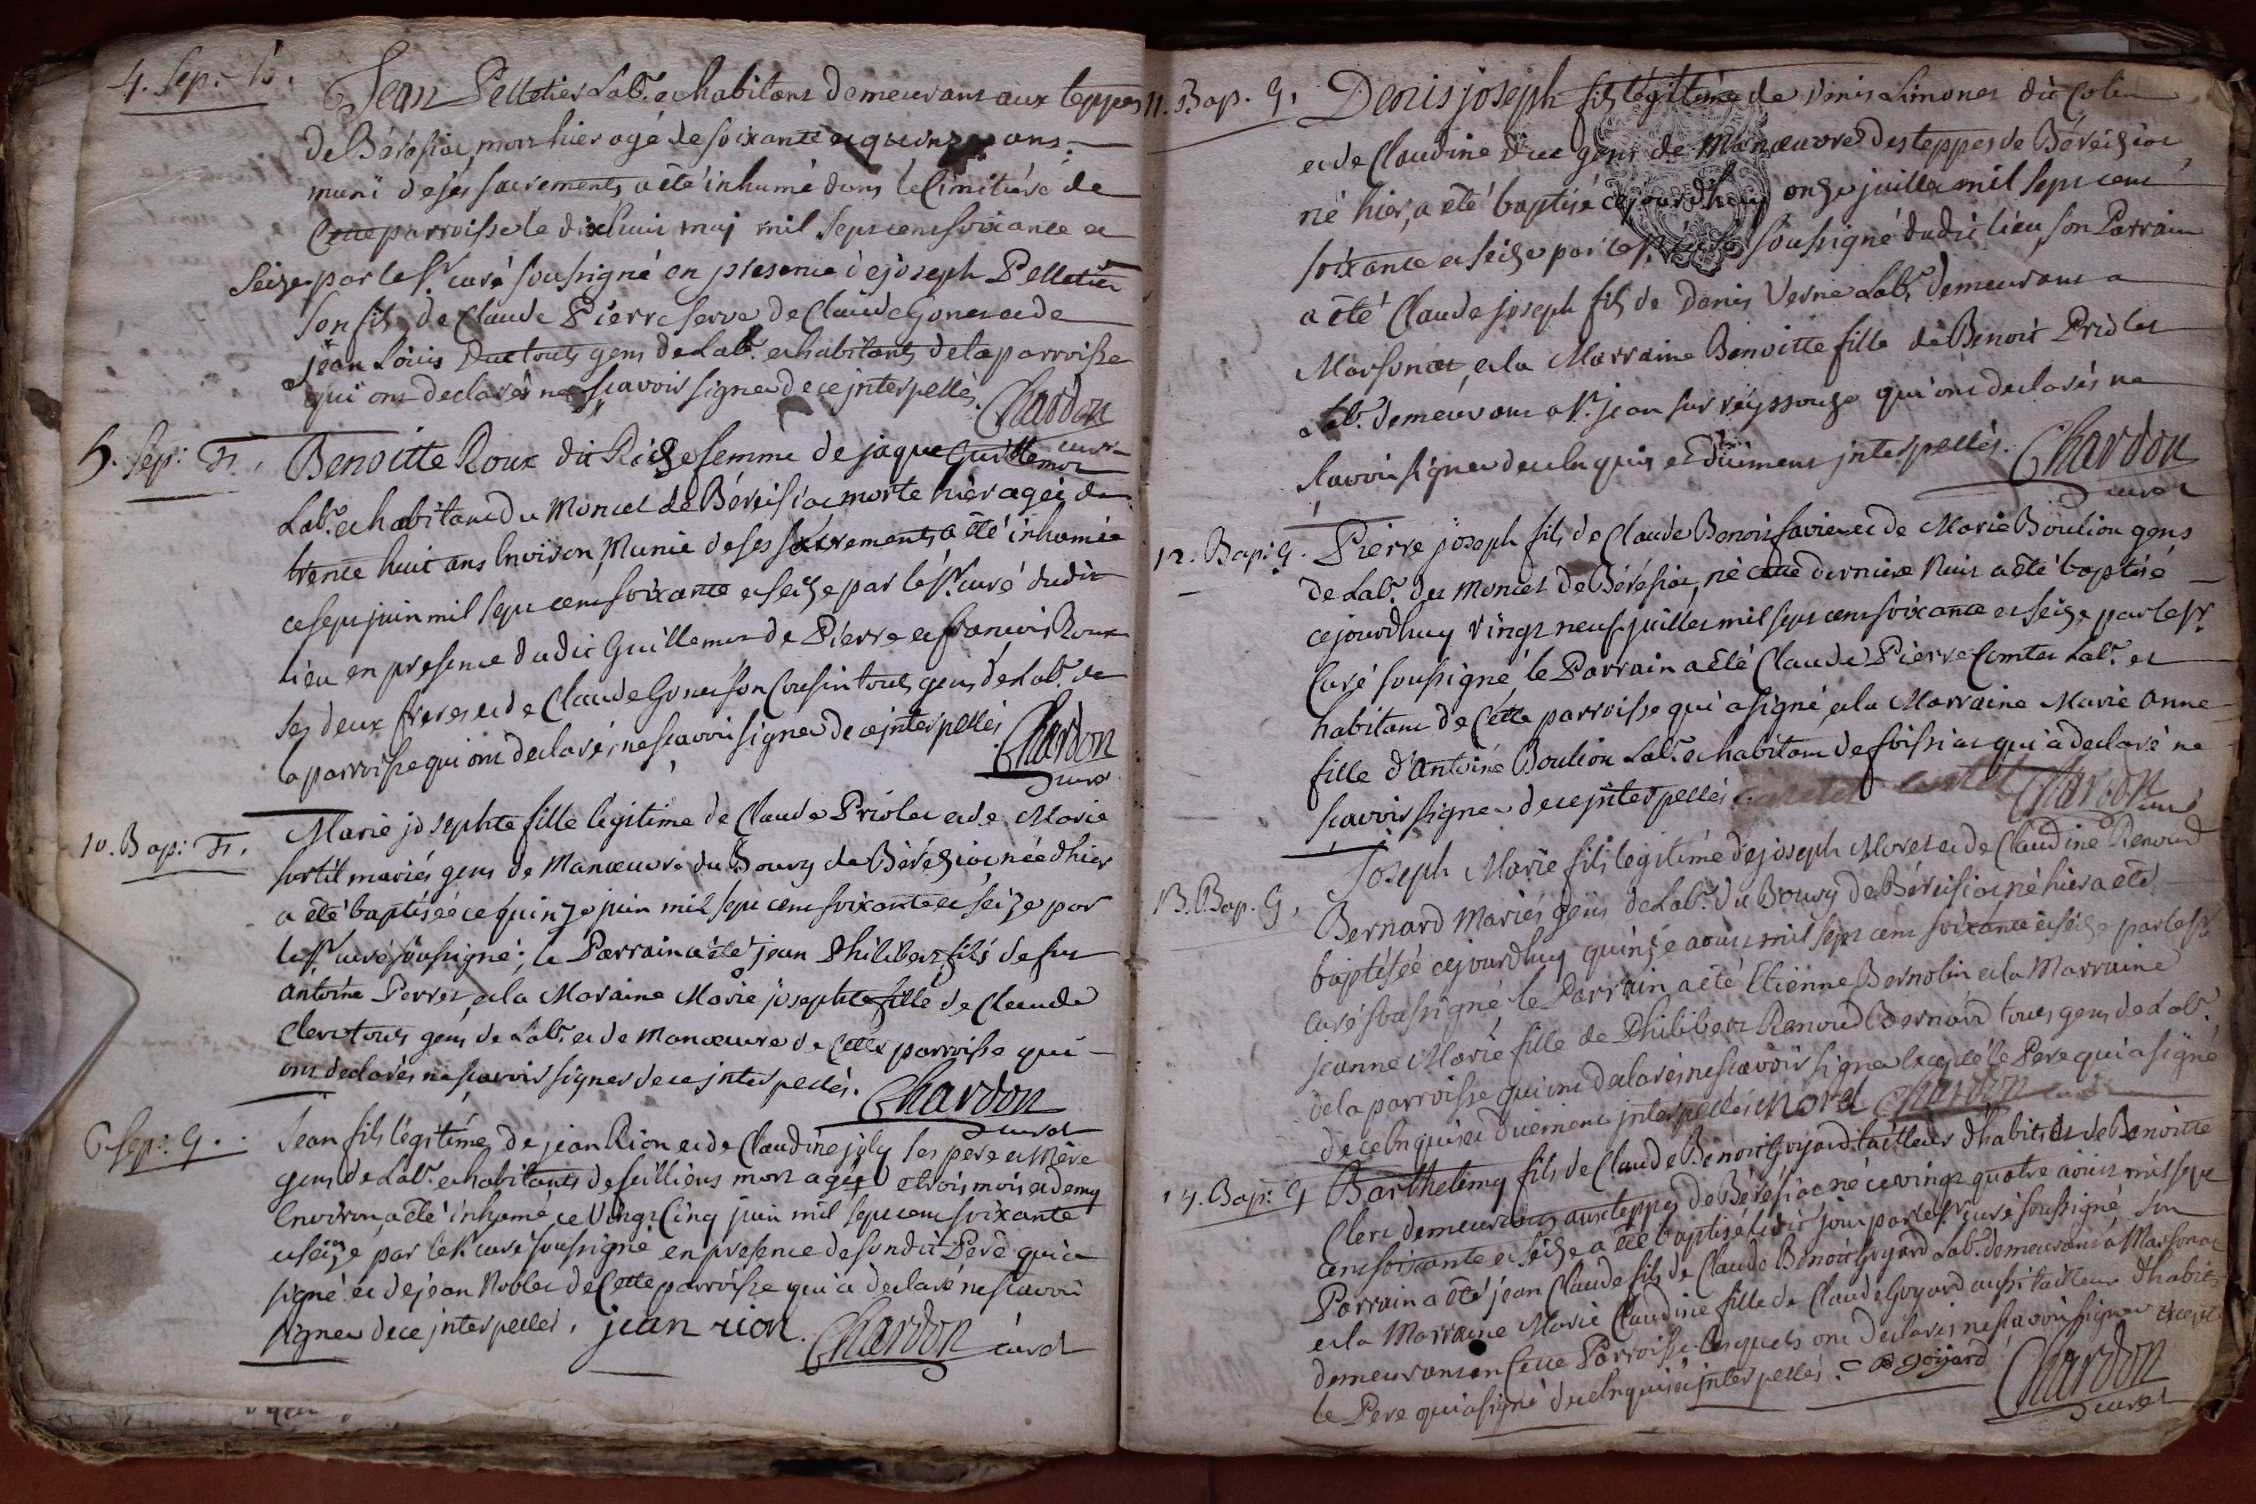 4. Sep: h.
Jean Pelletier Labr. et habitant demeurant aux teppes
de Bérésiat, mort hier agé de soixante et quinze ans,
muni de ses sacrements, a été inhumé dans le Cimitière de
Cette parroisse le dixhuit maj mil sept cent soixante et
seize par le sr. curé soussigné en presence de joseph Pelletier
son fils, de Claude Pierre Serve de Claude Gonet et de
jean Loüis Duc touts gens de Labr. et habitants de la parroisse
qui ont declarés ne sçavoir signer de ce interpellés. Chardon
curé
5. Sep: F.
Benoitte Roux dit Rige femme de jaque Guillemot
Labr. et habitant du Moncet de Béreisiat morte hier agée de
trente huit ans Environ, Munie de ses sacrements, a été inhumée
ce sept juin mil sept cent soixante et seize par le sr. curé dudit
Lieu en presence dudit Guillemot de Pierre et francois Roux
ses deux freres et de Claude Gonet son Cousin touts gens de Labr. de
la parroisse qui ont declarés ne sçavoir signer de ce interpellés Chardon
curé
10. Bap: F.
Marie josephte fille légitime de Claude Priolet et de Marie
sortit mariés gens de Manœuvre du Bourg de Béréziat née d'hier
a été baptisée ce quinze juin mil sept cent soixante et seize par
le sr. curé soussigné; le Parrain a été jean Philibert fils de feu
antoine Perret, et la Maraine Marie josephte fille de Claude
Clerc touts gens de Labr. et de Manœuvre de Cette parroisse qui
ont declarés ne sçavoir signer de ce interpellés. Chardon
curé
6 Sep: G.
Jean fils légitime de jean Rion et de Claudine joly ses pere et Mère
gens de Labr. et habitants de seilliens mort agé de trois mois et demy
Environ a été inhumé ce Vingt Cinq juin mil sept cent soixante
et seize par le sr. curé soussigné en presence de son dit Pere qui a
signé et de jean Noblet de Cette parroisse qui a declaré ne sçavoir
signer de ce interpellés. jean rion. Chardon curé
11. Bap. G.
Denis joseph fils légitime de Denis Limonet dit Colin
et de Claudine Duc gens de Manœuvre des teppes de Béreiziat
né hier, a été baptisé cejourdhuy onze juillet mil sept cent
soixante et seize par le sr. curé soussigné dudit lieu, son Parrain
a été Claude joseph fils de Denis Verne Labr. demeurant a
Marsonat, et la Marraine Benoitte fille de Benoit Priolet
Labr. demeurant a st. jean sur reyssouze qui ont declarés ne
sçavoir signer de ce enquis et düement interpellés. Chardon
curé
12. Bap: G.
Pierre joseph fils de Claude Benoit favier et de Marie Boulion gens
de Labr. du Moncet de Bérésiat, né cette derniere Nuit a été baptisé
cejourdhuy vingt neuf juillet mil sept cent soixante et seize par le sr.
Curé soussigné le Parrain a été Claude Pierre Comtet Labr. et
habitant de Cette parroisse qui a signé, et la Marraine Marie Anne
fille d'Antoine Boulion Labr. et habitant de foissiat qui a declaré ne
sçavoir signer de ce interpellés. Chardon
curé
13. Bap. G.
Joseph Marie fils legitime de joseph Morel et de Claudine Renoud
Bernard Mariés gens de Labr. du Bourg de Béreisiat né hier a été
baptisée cejourdhuy quinze aoust mil sept cent soixante et seize par le sr
curé soussigné, le Parrain a été Etienne Bernolin et la Marraine
jeanne Marie fille de Philibert Renoud Bernard touts gens de Labr.
de la parroisse qui ont declarés ne sçavoir signer Excepté le Pere qui a signé
de ce enquis et düement interpellés morel Chardon curé
14. Bap: G
Barthelemy fils de Claude Benoit Goyard tailleur d'habits et de Benoitte
Clerc demeurants aux teppes de Bérésiat né ce vingt quatre aoust mil sept
cent soixante et seize a été baptisé ledit jour par le sr. curé soussigné son
Parrain a été jean Claude fils de Claude Benoit Goyard Labr. demeurant a Marsonat
et la Marraine Marie Claudine fille de Claude Goyard aussi tailleur d'habits
demeurant en Cette Parroisse lesquels ont declarés ne sçavoir signer excepté
le Pere qui a signé de ce enquis et interpellés. C B Goyard Chardon
curé